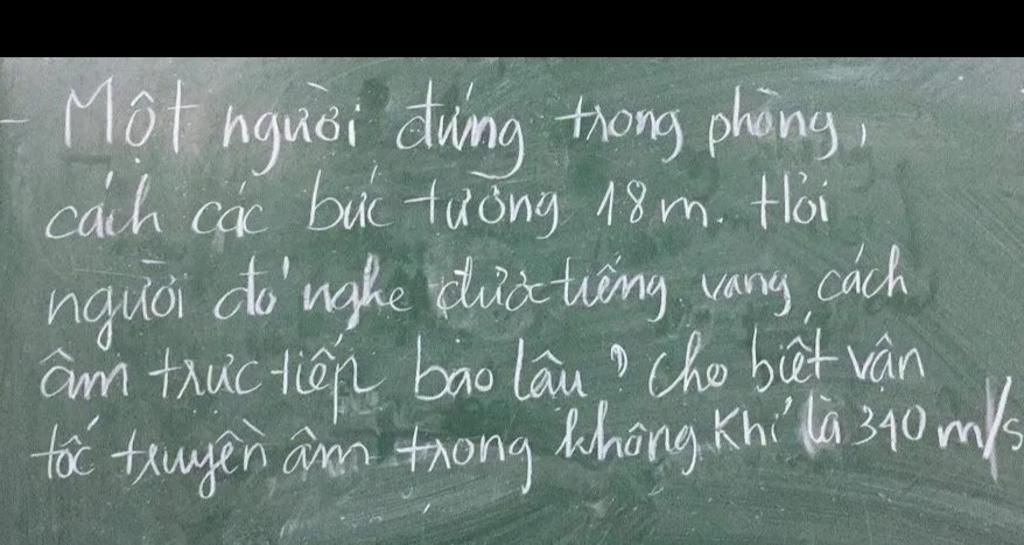 - Một người đứng trong phòng,
cách các bức tường 18m. Hỏi
người đó nghe được tiếng vang cách
âm trực tiếp bao lâu? Cho biết vận
tốc truyền âm trong không khí là 340 m/s